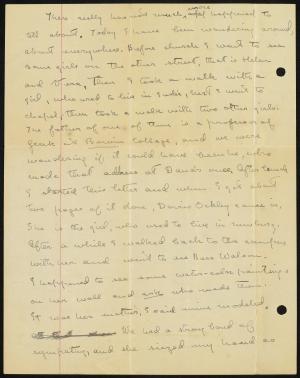 There really has n't much, more happened to
tell about. Today I have been wandering around,
about everywhere. Before church I went to see
some girls on the other street, that is Helen
and Vera, then I took a walk with a
girl, who used to live in Index, next I went to
chapel, then took a walk with two other girls.
The father of one of them is a professor of
Greek in College, and we were
wondering if it could have been he, who
made that address at Dana's once. After lunch
I started this letter and when I got about
two pages of it done, Doris came in.
She is the girl, who used to live in Newburg.
After a while I walked back to the campus
with her and went to see Miss Watson.
I happened to see some water-color paintings
on her wall and ask who made them.
It was her mother, I said mine modeled.
We had a strong bond of
sympathy, and she seized my hand as